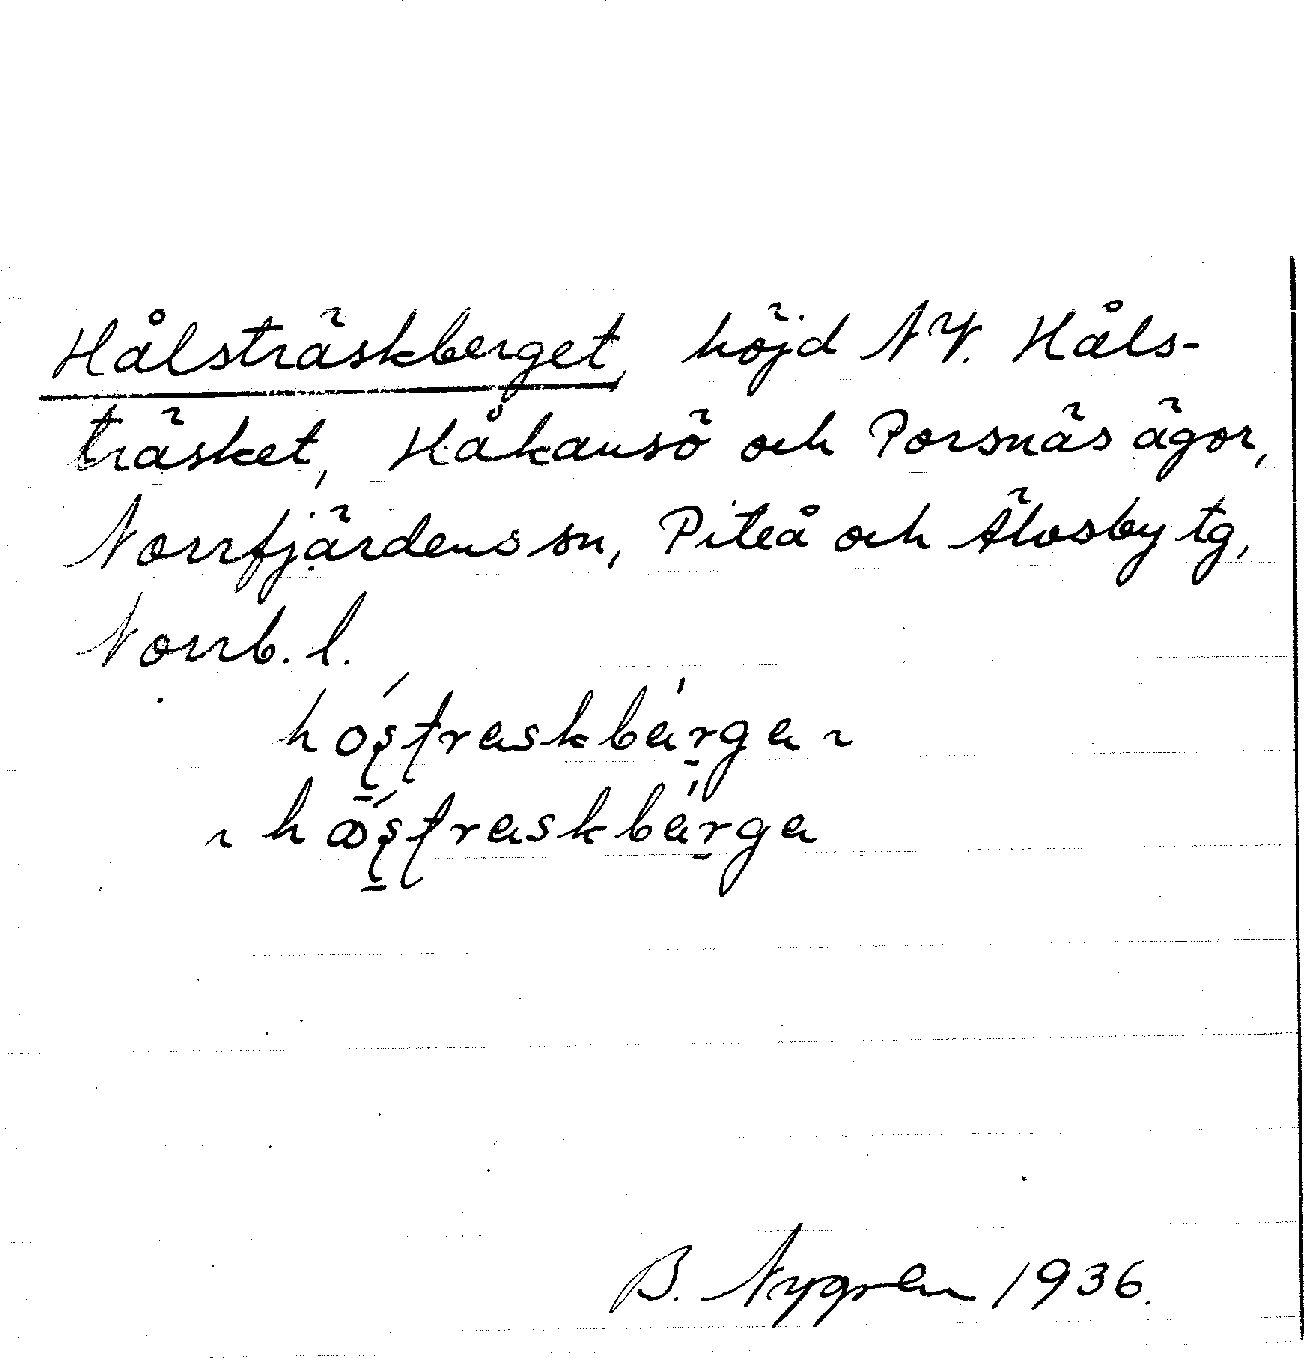 Hålsträskberget, höjd NV. Håls-
träsket, Håkansö och Porsnäs ägor,
Norrfjärdens sn, Piteå och Älvsby tg,
Norrb. l.
B. Nygren 1936.